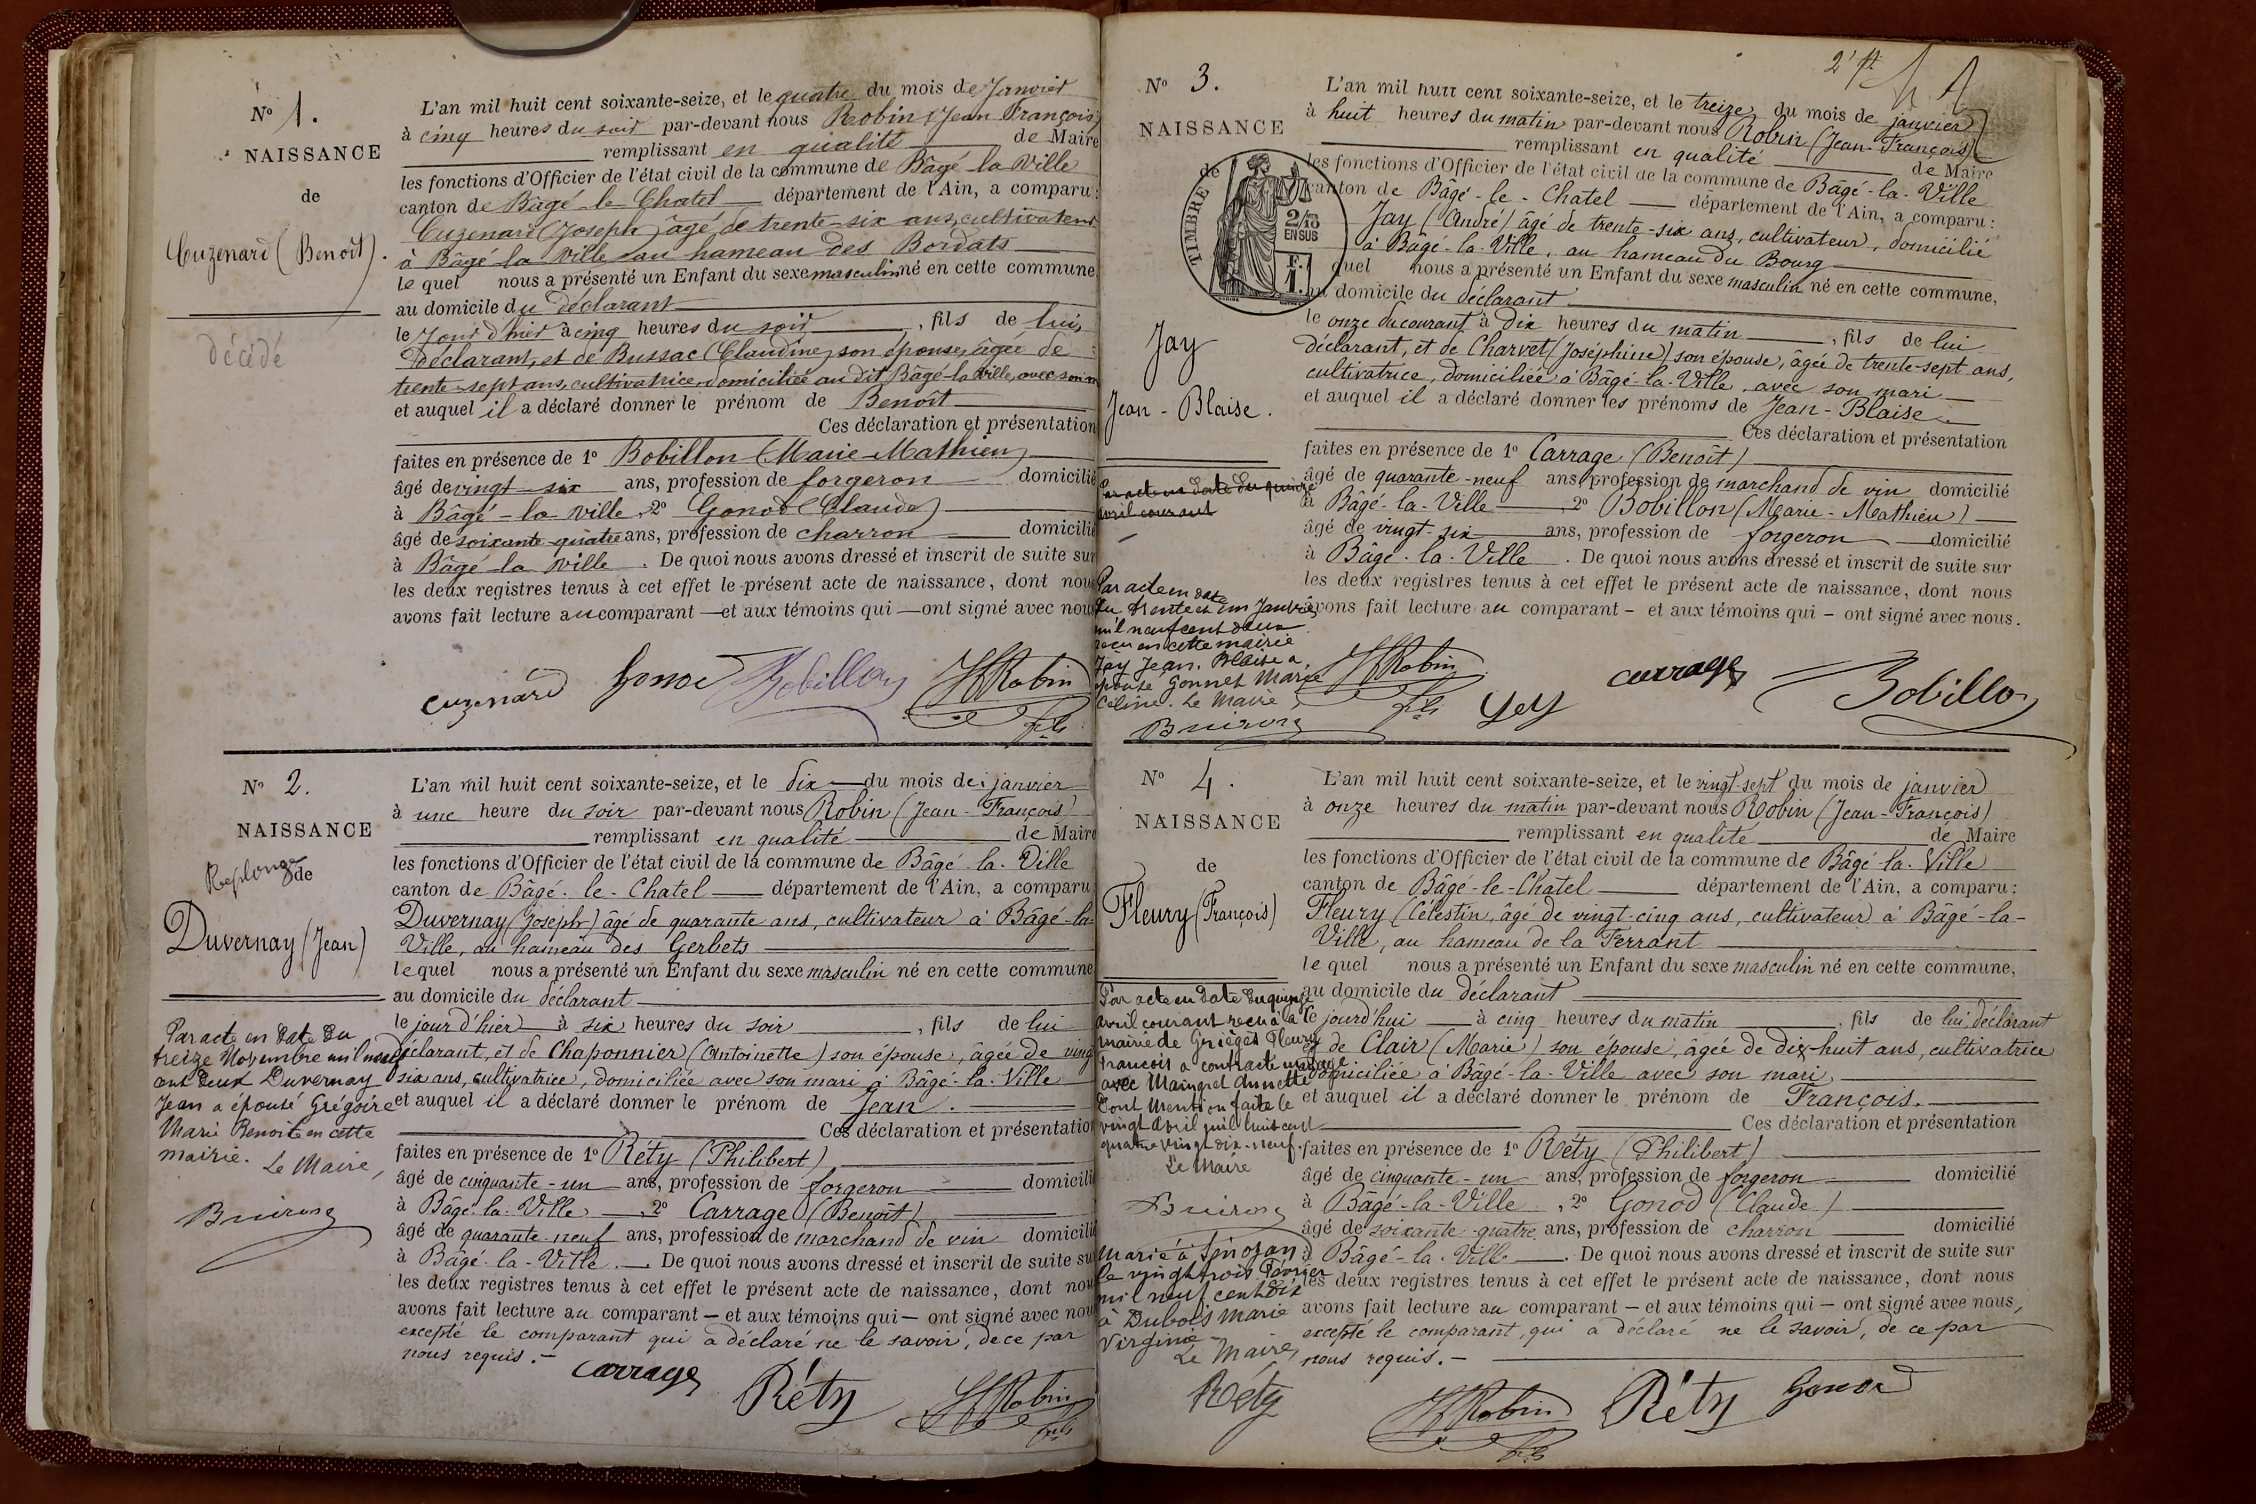 No 1.
NAISSANCE
de
Cuzenard (Benoît).
décédé
L'an mil huit cent soixante-seize, et le quatre du mois de Janvier
à cinq heures du soir par-devant nous Robin (Jean François)
remplissant en qualité de Maire
les fonctions d'Officier de l'état civil de la commune de Bâgé la Ville
canton de Bâgé le Chatel département de l'Ain, a comparu :
Cuzenard (Joseph) âgé de trente-six ans, cultivateur
à Bâgé la Ville au hameau des Bordats
le quel nous a présenté un Enfant du sexe masculin né en cette commune
au domicile du déclarant
le Jour d'hier à cinq heures du soir, fils de lui,
déclarant, et de Bussac (Claudine) son épouse, âgée de
trente-sept ans, cultivatrice, domiciliée au dit Bâgé-la Ville, avec son m
et auquel il a déclaré donner le prénom de Benoît
Ces déclaration et présentation
faites en présence de 1o Bobillon (Marie-Mathieu)
âgé de vingt-six ans, profession de forgeron domicilié
à Bâgé-la Ville, 2o Gonod (Claude)
âgé de soixante-quatre ans, profession de charron domicilié
à Bâgé la Ville. De quoi nous avons dressé et inscrit de suite sur
les deux registres tenus à cet effet le présent acte de naissance, dont nous
avons fait lecture au comparant — et aux témoins qui — ont signé avec nous
cuzenard Gonod Bobillon JfRobin
fils
No 2.
NAISSANCE
de
Replonge
Duvernay (Jean)
Par acte en date du
treize Novembre mil neuf
cent deux Duvernay
Jean a épousé Grégoire
Marie Benoite en cette
mairie. Le Maire,
Buiron
L'an mil huit cent soixante-seize, et le dix du mois de janvier
à une heure du soir par-devant nous Robin (Jean-François)
remplissant en qualité de Maire
les fonctions d'Officier de l'état civil de la commune de Bâgé-la-Ville
canton de Bâgé-le-Chatel département de l'Ain, a comparu
Duvernay (Joseph) âgé de quarante ans, cultivateur à Bâgé-la-
Ville, au hameau des Gerbets
le quel nous a présenté un Enfant du sexe masculin né en cette commune
au domicile du déclarant
le jour d'hier à six heures du soir, fils de lui
déclarant, et de Chaponnier (Antoinette) son épouse, âgée de vingt
six ans, cultivatrice, domiciliée avec son mari à Bâgé-la-Ville
et auquel il a déclaré donner le prénom de Jean.
Ces déclaration et présentation
faites en présence de 1o Réty (Philibert)
âgé de cinquante-un ans, profession de forgeron domicilié
à Bâgé-la-Ville, 2o Carrage (Benoît)
âgé de quarante-neuf ans, profession de marchand de vin domicilié
à Bâgé-la-Ville. De quoi nous avons dressé et inscrit de suite sur
les deux registres tenus à cet effet le présent acte de naissance, dont nous
avons fait lecture au comparant — et aux témoins qui — ont signé avec nous
excepté le comparant qui a déclaré ne le savoir, de ce par
nous requis.-
carrage Réty JfRobin
fils
2e ft
No 3.
NAISSANCE
de
TIMBRE
2/10
EN SUS
F.
1.
Jay
Jean-Blaise.
Par acte en date du quinze
avril courant
Par acte en date
du trente et un Janvier
mil neuf cent deux
reçu en cette mairie
Jay Jean. Blaise a
épousé Gonnet Marie
Céline. Le Maire,
Buiron
L'an mil huit cent soixante-seize, et le treize du mois de janvier
à huit heures du matin par-devant nous Robin (Jean-François)
remplissant en qualité de Maire
les fonctions d'Officier de l'état civil de la commune de Bâgé-la-Ville
canton de Bâgé-le-Chatel département de l'Ain, a comparu :
Jay (André) âgé de trente-six ans, cultivateur, domicilié
à Bâgé-la-Ville, au hameau du Bourg
quel nous a présenté un Enfant du sexe masculin né en cette commune,
au domicile du déclarant
le onze du courant à dix heures du matin, fils de lui
déclarant, et de Charvet (Joséphine) son épouse, âgée de trente-sept ans,
cultivatrice, domiciliée à Bâgé-la-Ville avec son mari
et auquel il a déclaré donner les prénoms de Jean-Blaise.
Ces déclaration et présentation
faites en présence de 1o Carrage (Benoît)
âgé de quarante-neuf ans, profession de marchand de vin domicilié
à Bâgé-la-Ville, 2o Bobillon (Marie-Mathieu)
âgé de vingt-six ans, profession de forgeron domicilié
à Bâgé-la-Ville. De quoi nous avons dressé et inscrit de suite sur
les deux registres tenus à cet effet le présent acte de naissance, dont nous
avons fait lecture au comparant — et aux témoins qui — ont signé avec nous.
JfRobin carrage
fils Jay Bobillon
No 4.
NAISSANCE
de
Fleury (François)
Par acte en date du quinze
avril courant reçu à la
mairie de Grièges Fleury
François a contracté mariage
avec Maingret Annette
dont Mention faite le
vingt Avril mil huit cent
quatre vingt dix-neuf.
Le Maire
Buiron
Marié à Senozan
le vingt trois Février
mil neuf cent dix
à Dubois Marie
Virginie
Le Maire,
Réty
L'an mil huit cent soixante-seize, et le vingt-sept du mois de janvier
à onze heures du matin par-devant nous Robin (Jean-François)
remplissant en qualité de Maire
les fonctions d'Officier de l'état civil de la commune de Bâgé-la-Ville
canton de Bâgé-le-Chatel département de l'Ain, a comparu :
Fleury (Célestin, âgé de vingt-cinq ans, cultivateur à Bâgé-la-
Ville, au hameau de la Ferrant
le quel nous a présenté un Enfant du sexe masculin né en cette commune,
au domicile du déclarant
le jourd'hui à cinq heures du matin, fils de lui déclarant
et de Clair (Marie) son épouse, âgée de dix-huit ans, cultivatrice
domiciliée à Bâgé-la-Ville avec son mari
et auquel il a déclaré donner le prénom de François.
Ces déclaration et présentation
faites en présence de 1o Réty (Philibert)
âgé de cinquante-un ans, profession de forgeron domicilié
à Bâgé-la-Ville, 2o Gonod (Claude)
âgé de soixante-quatre ans, profession de charron domicilié
à Bâgé-la-Ville. De quoi nous avons dressé et inscrit de suite sur
les deux registres tenus à cet effet le présent acte de naissance, dont nous
avons fait lecture au comparant — et aux témoins qui — ont signé avec nous,
excepté le comparant, qui a déclaré ne le savoir, de ce par
nous requis.-
JfRobin Réty Gonod
fils